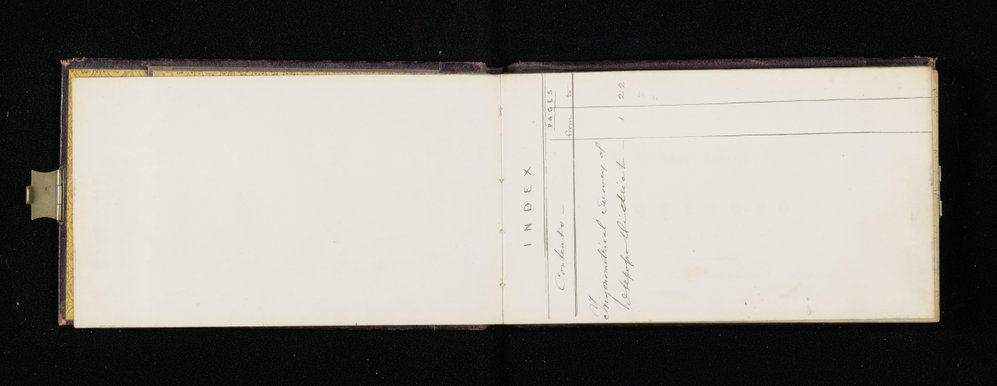 INDEX
Contents — PAGES
from to
Trigonometrical Survey of
District — 1 22